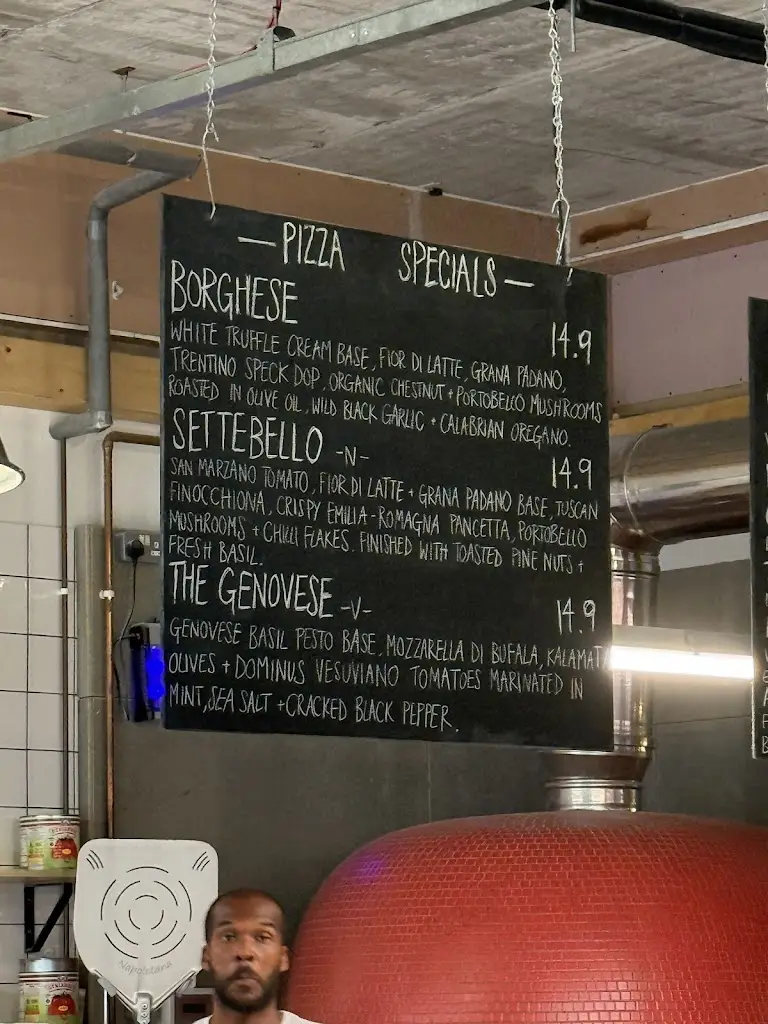 — PIZZA SPECIALS —
BORGHESE 14.9
WHITE TRUFFLE CREAM BASE, FIOR DI LATTE, GRANA PADANO,
TRENTINO SPECK DOP, ORGANIC CHESTNUT + PORTOBELLO MUSHROOMS
ROASTED IN OLIVE OIL, WILD BLACK GARLIC + CALABRIAN OREGANO.
SETTEBELLO -N- 14.9
SAN MARZANO TOMATO, FIOR DI LATTE + GRANA PADANO BASE, TUSCAN
FINOCCHIONA, CRISPY EMILIA-ROMAGNA PANCETTA, PORTOBELLO
MUSHROOMS + CHILLI FLAKES. FINISHED WITH TOASTED PINE NUTS +
FRESH BASIL.
THE GENOVESE -V- 14.9
GENOVESE BASIL PESTO BASE, MOZZARELLA DI BUFALA, KALAMAT
OLIVES + DOMINUS VESUVIANO TOMATOES MARINATED IN
MINT, SEA SALT + CRACKED BLACK PEPPER.
Napoletana